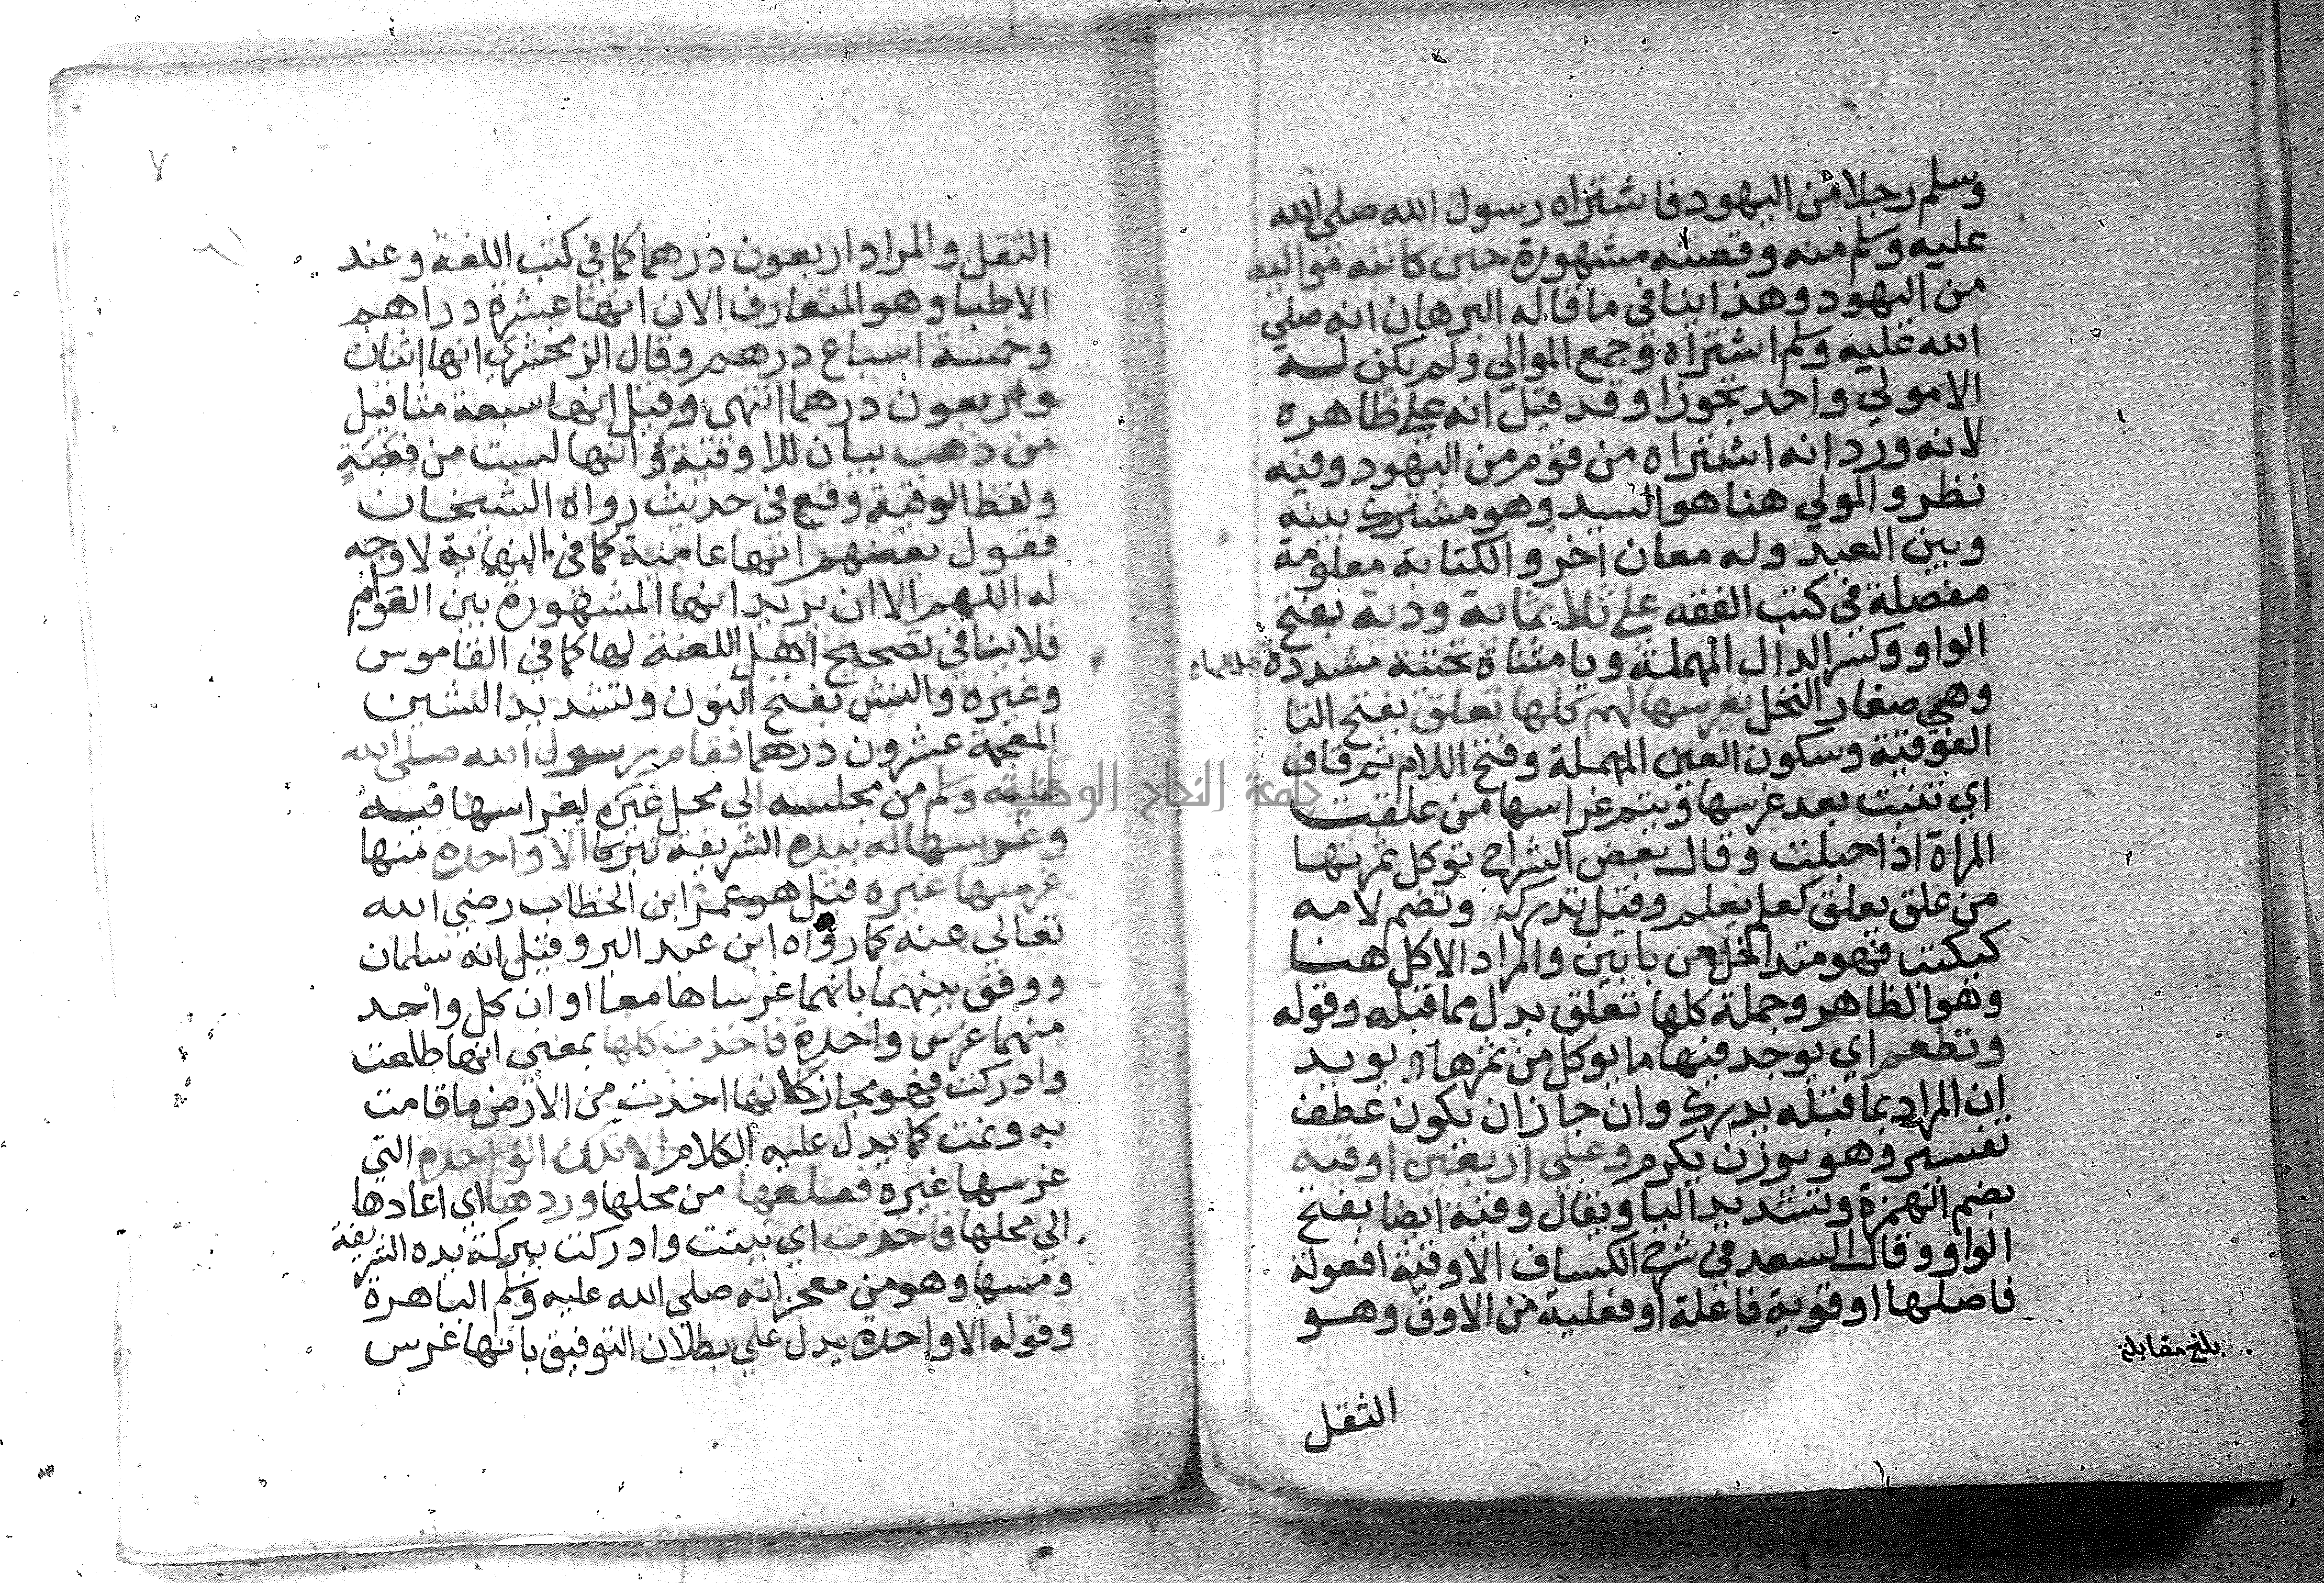 وسلم رجلا من اليهود فاشتراه رسول الله صلى الله
عليه وسلم منه وقصته مشهورة حين كاتبه مواليه
من اليهود وهذا ينافي ما قاله البرهان انه صلى
الله عليه وسلم اشتراه وجمع الموالي ولم يكن له
الا مولي واحد تجوزا وقد قيل انه علي ظاهره
لانه ورد انه اشتراه من قوم من اليهود وفيه
نظر والمولي هنا هو السيد وهو مشترك بينه
وبين العبد وله معان اخر والكتابة معلومة
مفصلة في كتب الفقه علي ثلاثماية ودية بفتح
الواو وكسر الدال المهملة ويا مثناة تحتية مشددة
وهي صغار النخل يغرسها لهم كلها تعلق بفتح التا
الفوقية وسكون العين المهملة وفتح اللام ثم قاف
اي تنبت بعد غرسها ويتم غراسها من علقت
المراة اذا حبلت وقال بعض الشراح توكل ثمرتها
من علق يعلق كعلم يعلم وقيل تدركه وتضم لامه
كيكتب فهو متداخل من بابين والمراد الاكل هنا
وهو الظاهر وجملة كلها تعلق بدل مما قبله وقوله
وتطعم اي يوجد فيها ما يوكل من ثمرها يويد
ان المراد بما قبله يدرك وان جاز ان يكون عطف
تفسير وهو بوزن يكرم وعلي اربعين اوقية
بضم الهمزة وتشديد اليا ويقال وقية ايضا بفتح
الواو وقال السعد في شرح الكساف الاوقية افعولة
فاصلها اوقوية فاعلة او فعلية من الاوق وهو
الثقل
بلغ مقابلة
الثقل والمراد اربعون درهما كما في كتب اللغة وعند
الاطبا وهو المتعارف الان انها عشرة دراهم
وخمسة اسباع درهم وقال الزمخشري انها اثنان
واربعون درهما انتهى وقيل انها سبعة مثاقيل
من ذهب بيان للاوقية وانها ليست من فضة
ولفظ الوقية وقع في حديث رواه الشيخان
فقول بعضهم انها عامية كما في النهاية لا وجه
له اللهم الا ان يريد انها المشهورة بين القوام
فلا ينافي تصحيح اهل اللغة لها كما في القاموس
وغيره والنش بفتح النون وتشديد الشين
المعجمة عشرون درهما فقام رسول الله صلى الله
عليه وسلم من مجلسه الى محل غيره ليغراسها فيه
وغرسها له بيده الشريفة تبركا الا واحدة منها
غرسها غيره قيل هو عمر ابن الخطاب رضي الله
تعالي عنه كما رواه ابن عبد البر وقيل انه سلمان
ووفق بينهما بانهما غرساها معا او ان كل واحد
منهما غرس واحدة فاخذت كلها بمعنى انها طلعت
وادركت فهو مجاز كانها اخذت من الارض ما قامت
به ونمت كما يدل عليه الكلام الا تلك الواحدة التي
غرسها غيره فقلعها من محلها وردها اي اعادها
الي محلها فاخذت اي نبتت وادركت ببركة يده الشريفة
ومسها وهو من معجزاته صلى الله عليه وسلم الباهرة
وقوله الا واحدة يدل علي بطلان التوفيق بانها غرس
٧
جامعة النجاح الوطنية